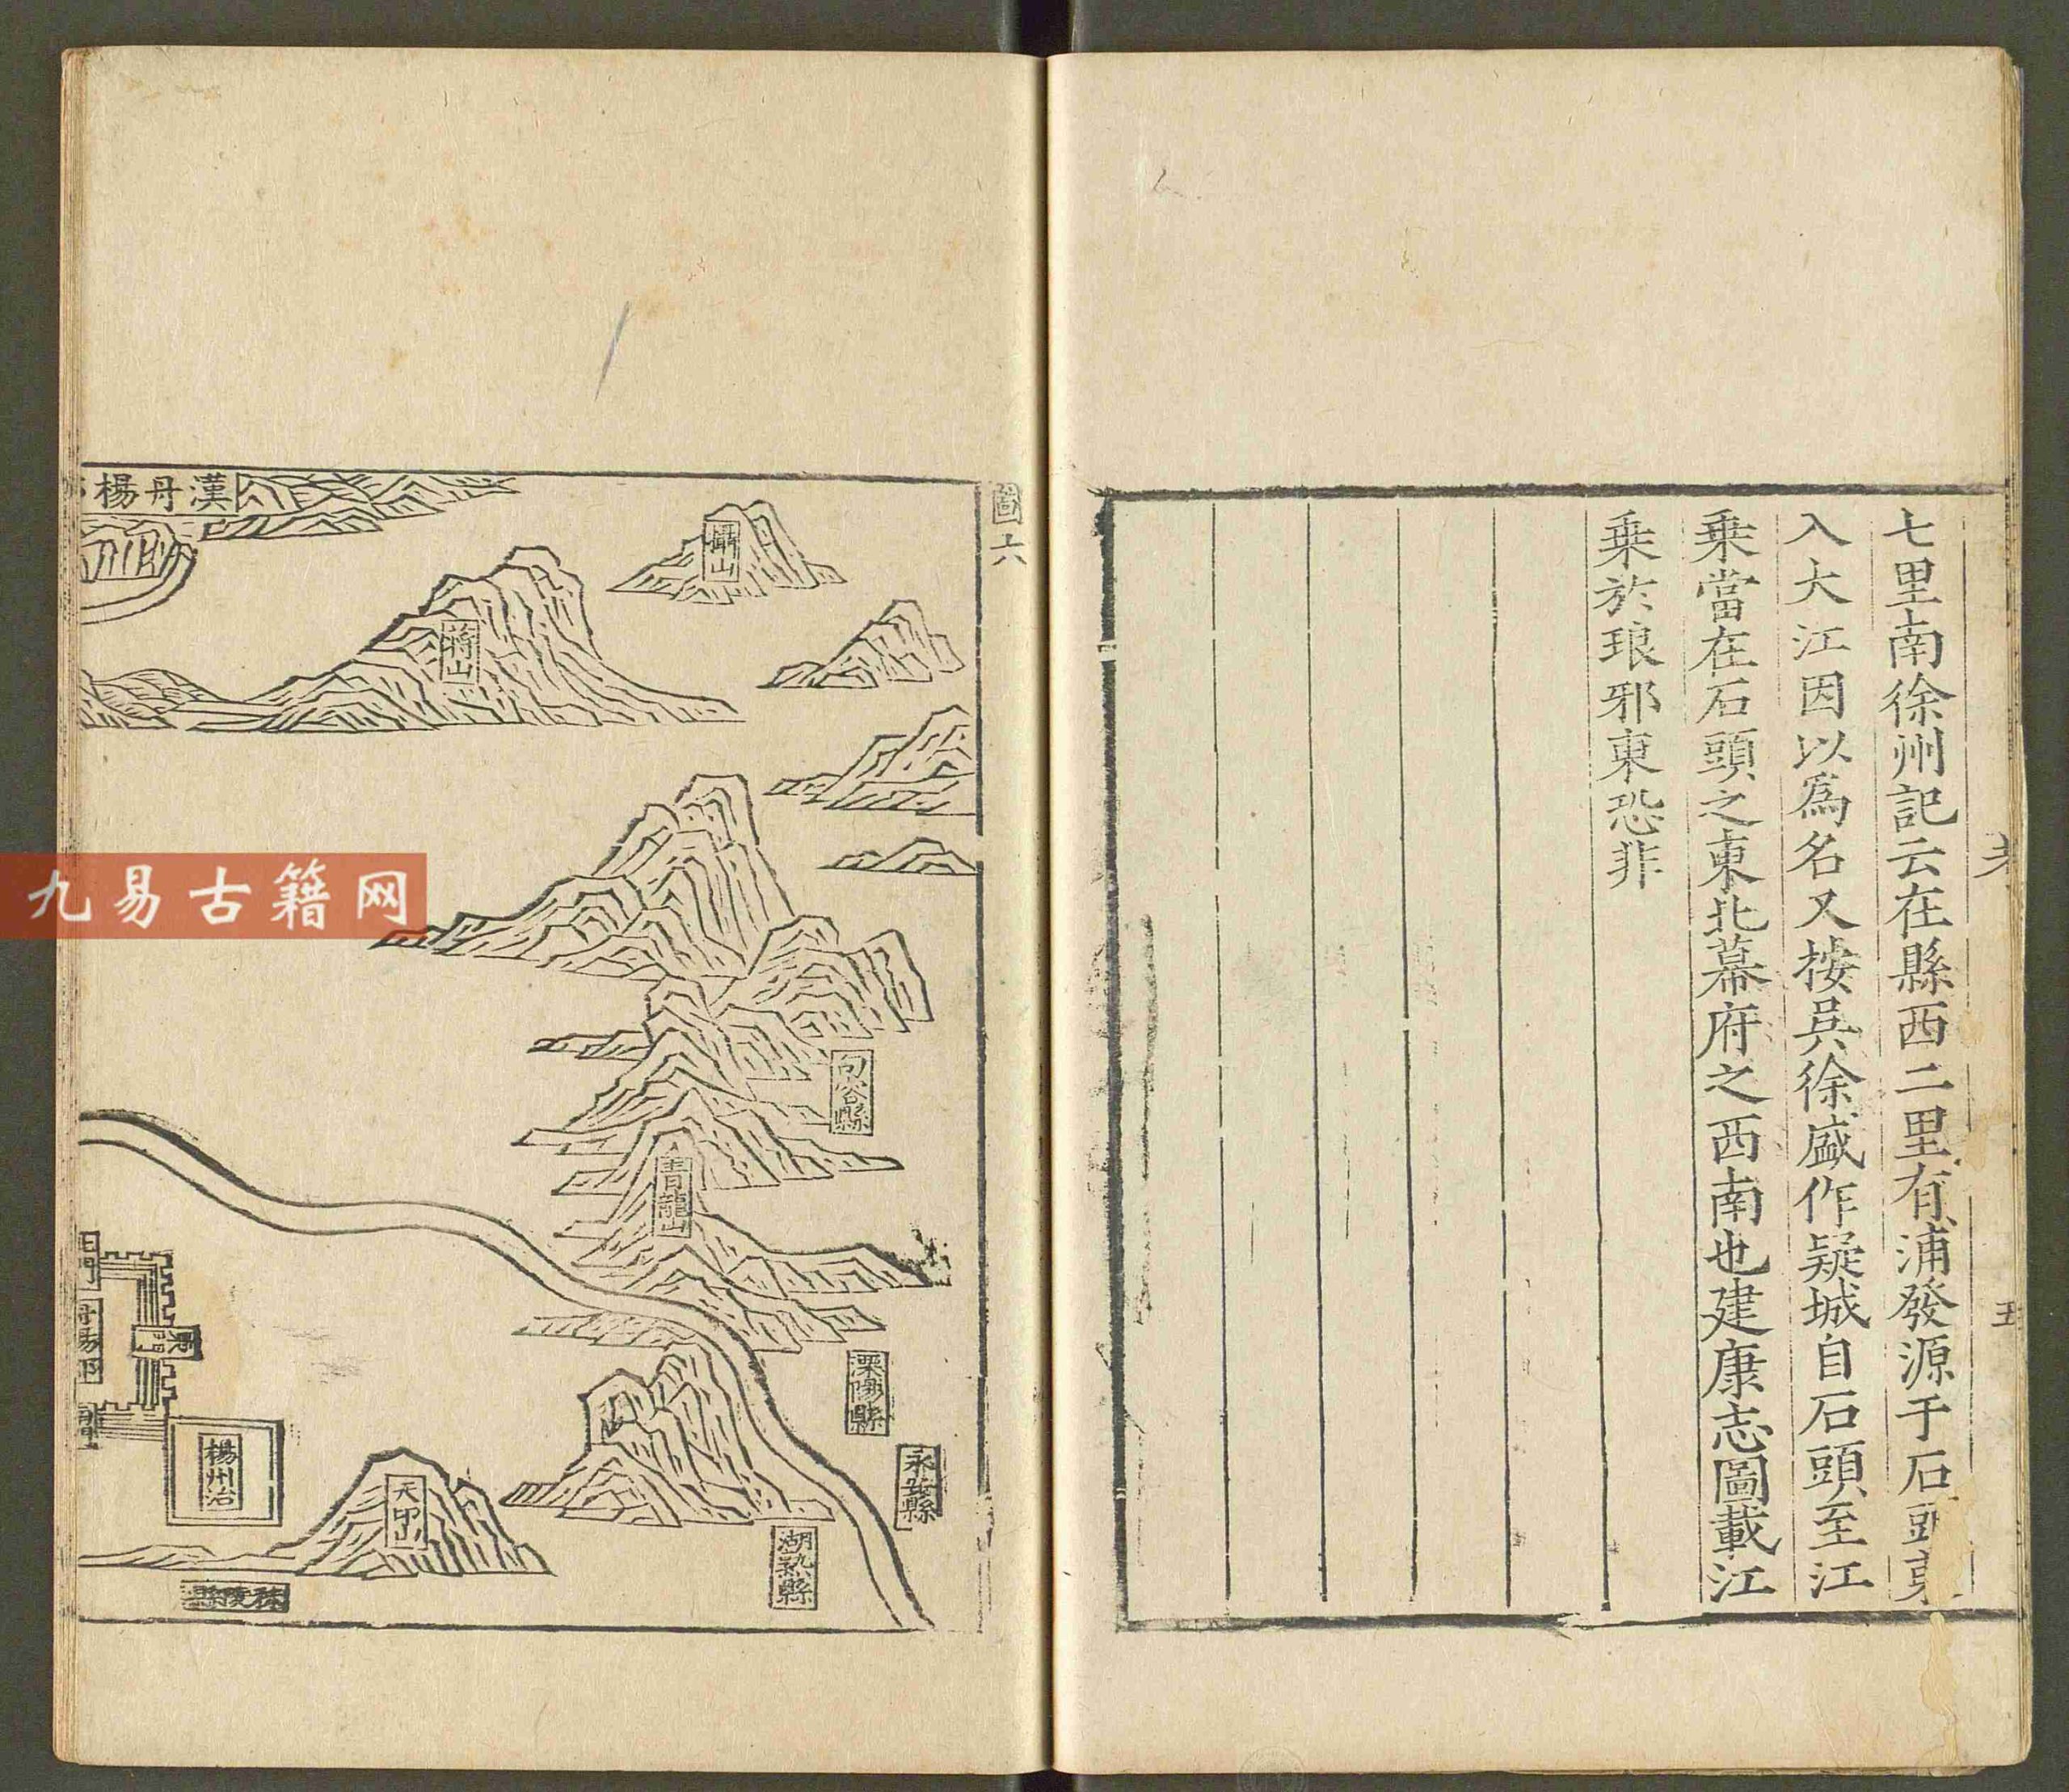 七里南徐州記云在縣西二里有浦發源于石頭東
入大江因以爲名又按吳徐盛作疑城自石頭至江
乗當在石頭之東北幕府之西南也建康志圖載江
乗於琅邪東恐非
五
圖六
漢丹楊
攝山
蔣山
句容縣
青龍山
溧陽縣
永安縣
湖熟縣
天印山
楊州治
秣陵縣
九易古籍网